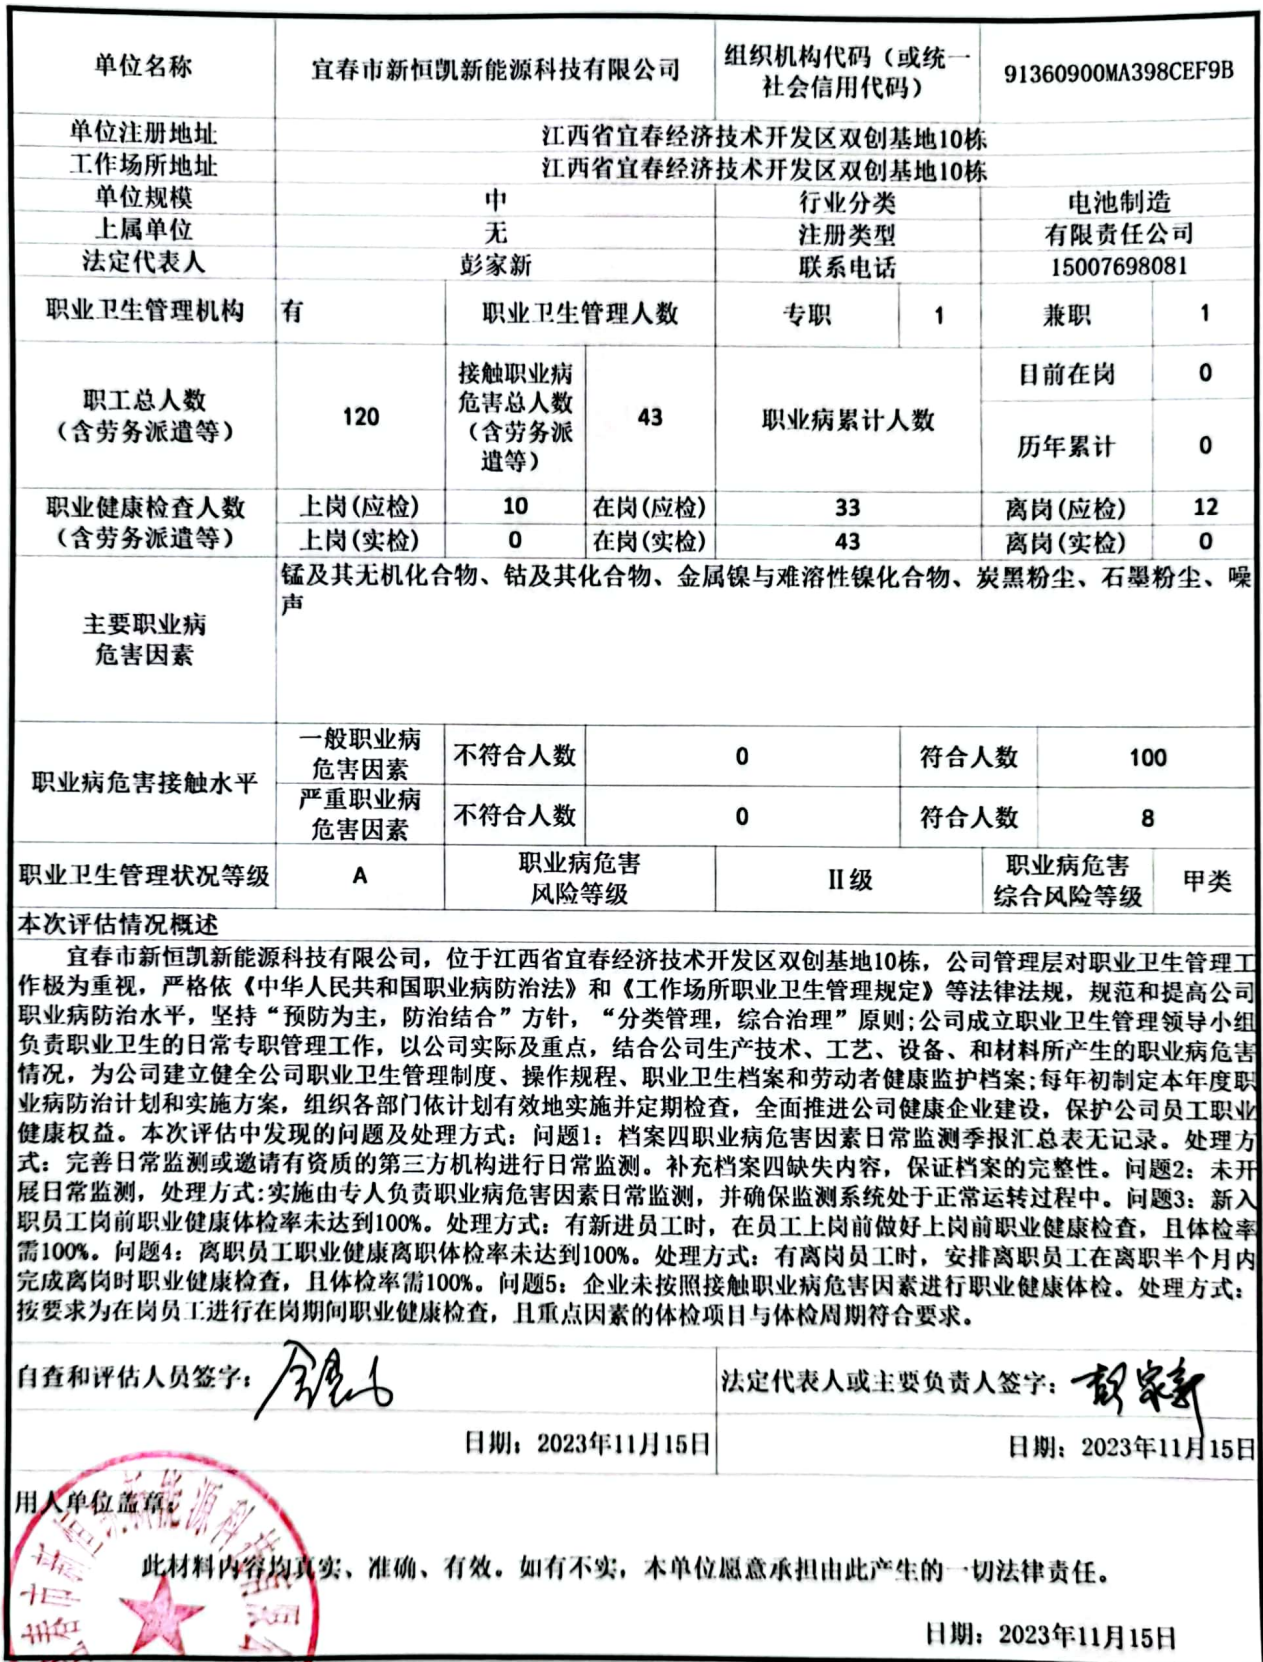 单位名称
宜春市新恒凯新能源科技有限公司
组织机构代码（或统一
社会信用代码）
91360900MA398CEF9B
单位注册地址
江西省宜春经济技术开发区双创基地10栋
工作场所地址
江西省宜春经济技术开发区双创基地10栋
单位规模
中
行业分类
电池制造
上属单位
无
注册类型
有限责任公司
法定代表人
彭家新
联系电话
15007698081
职业卫生管理机构
有
职业卫生管理人数
专职
1
兼职
1
职工总人数
（含劳务派遣等）
120
接触职业病
危害总人数
（含劳务派
遣等）
43
职业病累计人数
目前在岗
0
历年累计
0
职业健康检查人数
（含劳务派遣等）
上岗(应检)
10
在岗(应检)
33
离岗(应检)
12
上岗(实检)
0
在岗(实检)
43
离岗(实检)
0
主要职业病
危害因素
锰及其无机化合物、钴及其化合物、金属镍与难溶性镍化合物、炭黑粉尘、石墨粉尘、噪
声
职业病危害接触水平
一般职业病
危害因素
不符合人数
0
符合人数
100
严重职业病
危害因素
不符合人数
0
符合人数
8
职业卫生管理状况等级
A
职业病危害
风险等级
II级
职业病危害
综合风险等级
甲类
本次评估情况概述
宜春市新恒凯新能源科技有限公司，位于江西省宜春经济技术开发区双创基地10栋，公司管理层对职业卫生管理工
作极为重视，严格依《中华人民共和国职业病防治法》和《工作场所职业卫生管理规定》等法律法规，规范和提高公司
职业病防治水平，坚持“预防为主，防治结合”方针，“分类管理，综合治理”原则;公司成立职业卫生管理领导小组
负责职业卫生的日常专职管理工作，以公司实际及重点，结合公司生产技术、工艺、设备、和材料所产生的职业病危害
情况，为公司建立健全公司职业卫生管理制度、操作规程、职业卫生档案和劳动者健康监护档案;每年初制定本年度职
业病防治计划和实施方案，组织各部门依计划有效地实施并定期检查，全面推进公司健康企业建设，保护公司员工职业
健康权益。本次评估中发现的问题及处理方式：问题1：档案四职业病危害因素日常监测季报汇总表无记录。处理方
式：完善日常监测或邀请有资质的第三方机构进行日常监测。补充档案四缺失内容，保证档案的完整性。问题2：未开
展日常监测，处理方式:实施由专人负责职业病危害因素日常监测，并确保监测系统处于正常运转过程中。问题3：新入
职员工岗前职业健康体检率未达到100%。处理方式：有新进员工时，在员工上岗前做好上岗前职业健康检查，且体检率
需100%。问题4：离职员工职业健康离职体检率未达到100%。处理方式：有离岗员工时，安排离职员工在离职半个月内
完成离岗时职业健康检查，且体检率需100%。问题5：企业未按照接触职业病危害因素进行职业健康体检。处理方式：
按要求为在岗员工进行在岗期间职业健康检查，且重点因素的体检项目与体检周期符合要求。
自查和评估人员签字：
法定代表人或主要负责人签字：彭家新
日期：2023年11月15日
日期：2023年11月15日
用人单位盖章：
此材料内容均真实、准确、有效。如有不实，本单位愿意承担由此产生的一切法律责任。
日期：2023年11月15日